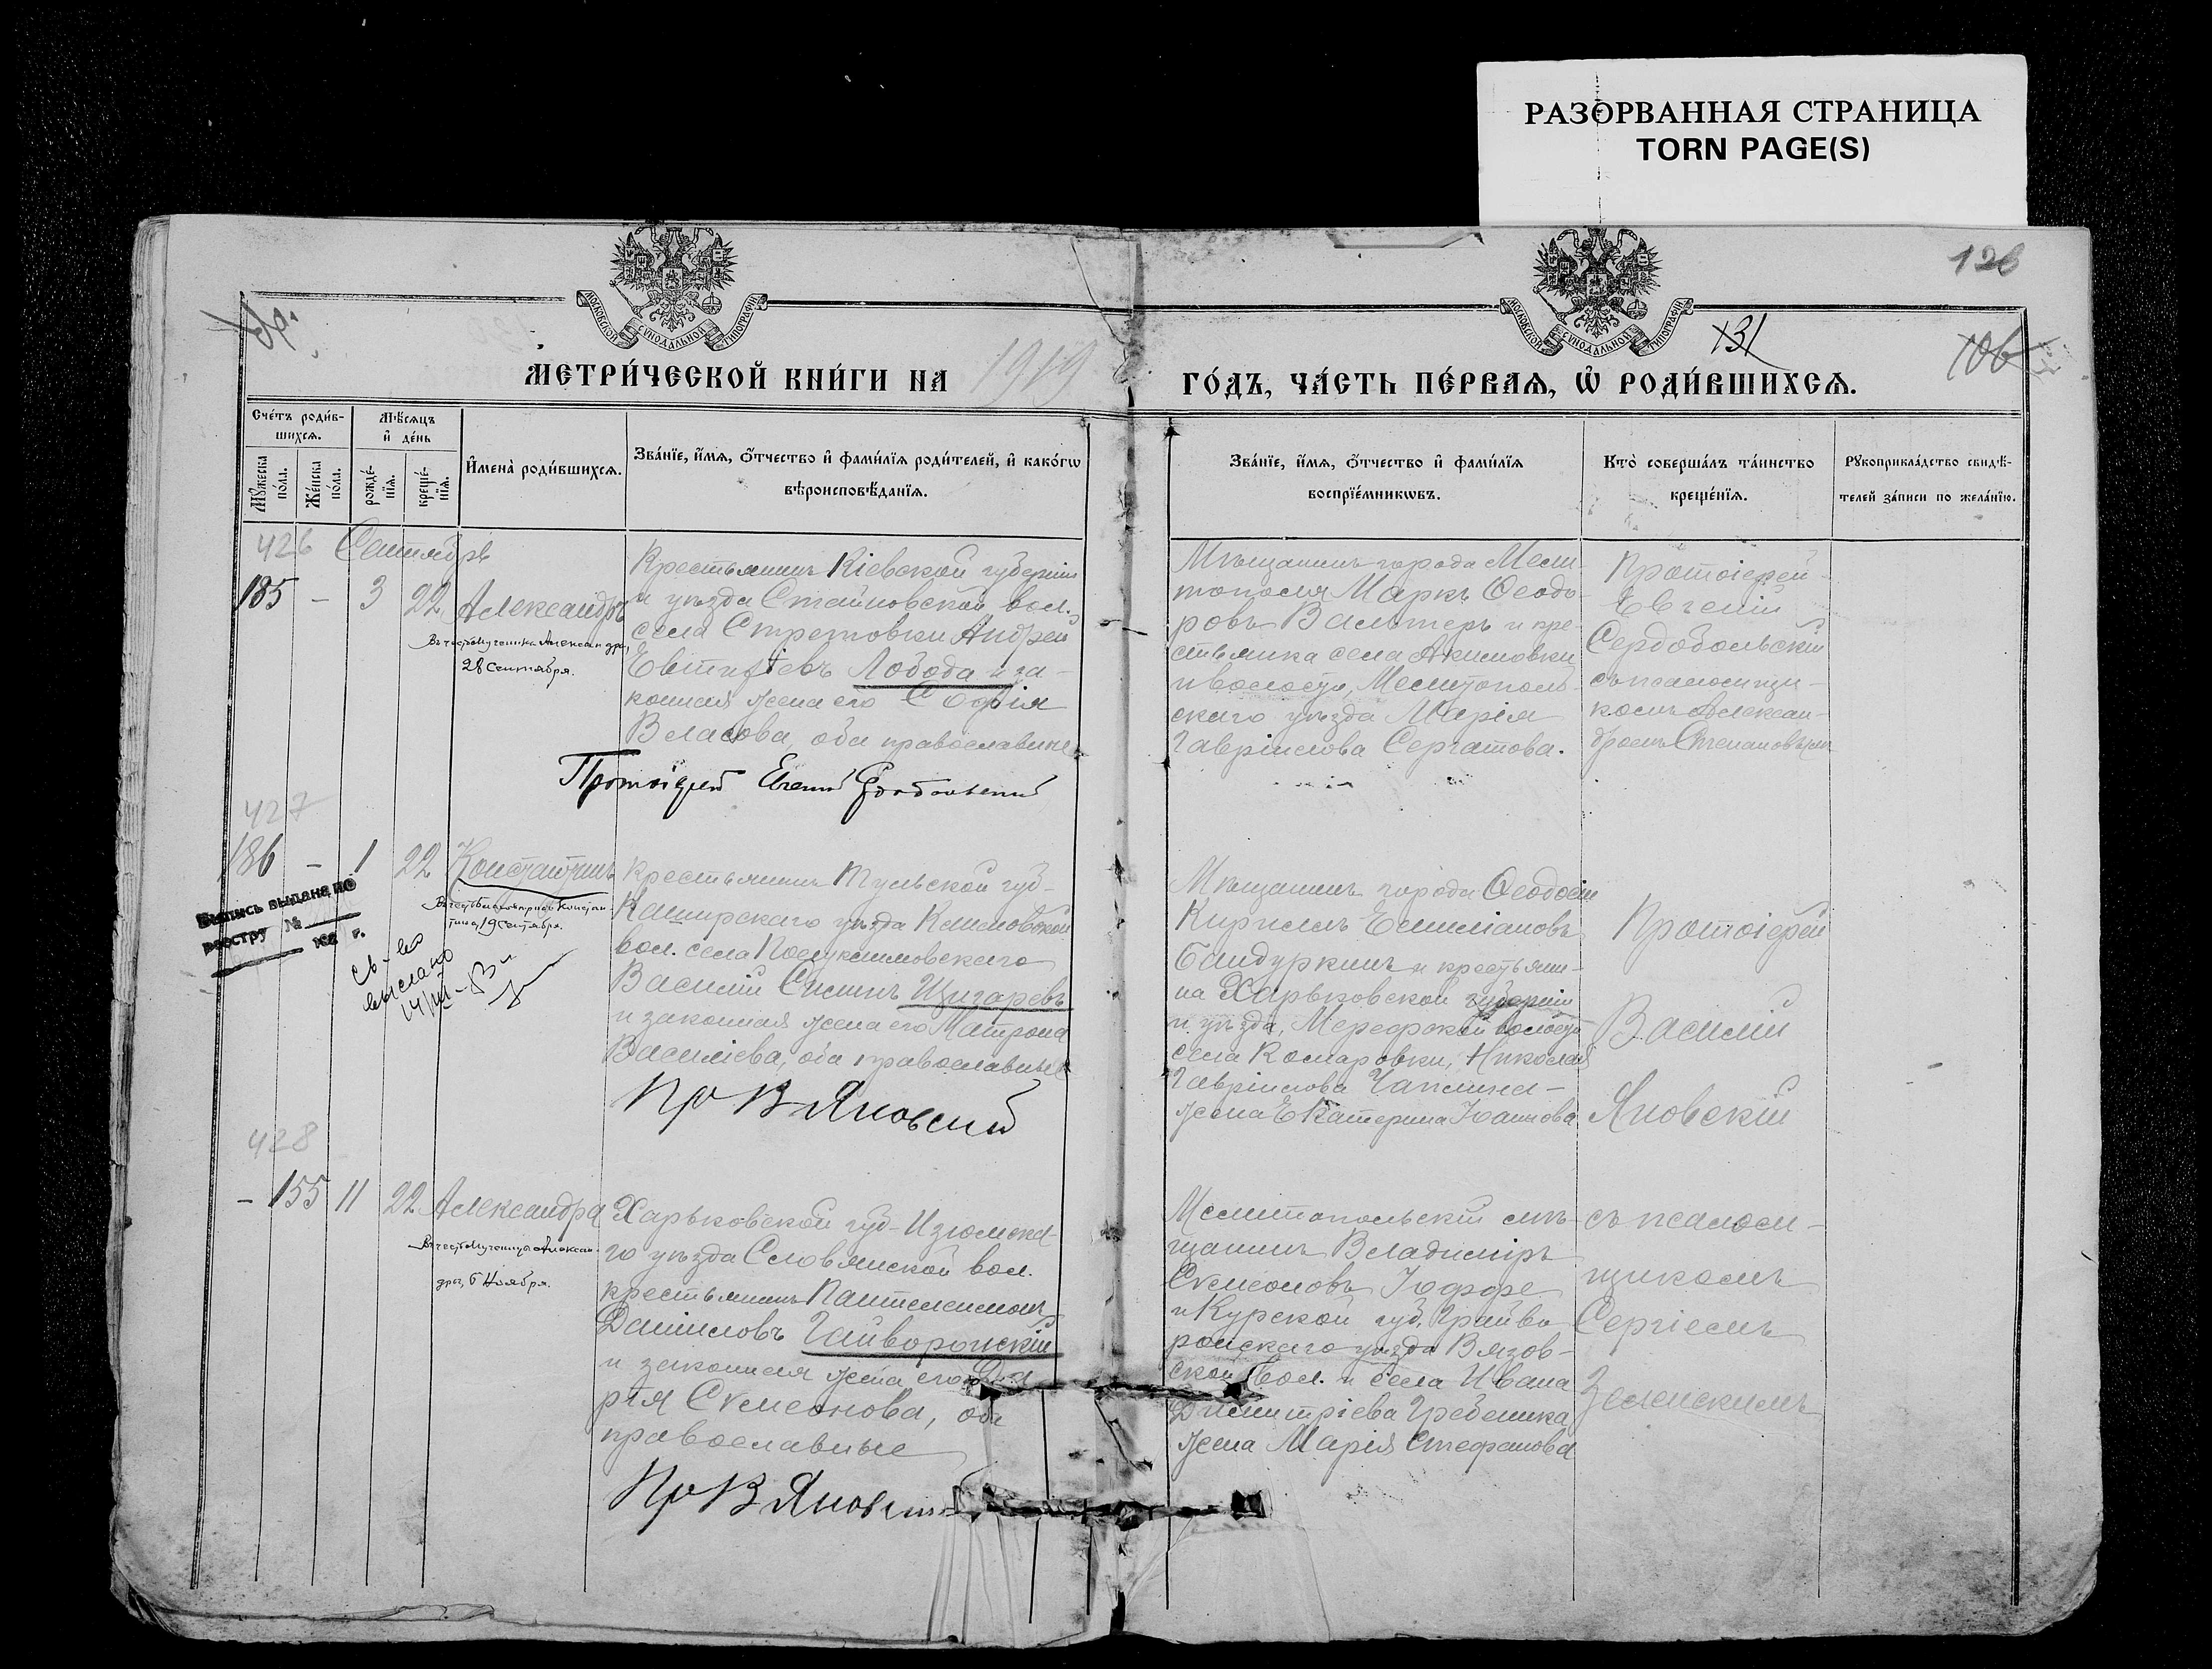 РАЗОРВАННАЯ СТРАНИЦА
TORN PAGE(S)
126
МОСКОВСКОЙ СѴНОДАЛЬНОЙ ТИПОГРАФІИ
МОСКОВСКОЙ СѴНОДАЛЬНОЙ ТИПОГРАФІИ
131
106
МЕТРИ́ЧЕСКОЙ КНИ́ГИ НА 1919 ГО́ДЪ, ЧА́СТЬ ПЕ́РВАЯ, Ѡ҆ РОДИ́ВШИХСЯ.
Сче́тъ роди́в-
шихсѧ.
Мѣ́сѧцъ
и҆ де́нь
Мꙋ́жеска
по́ла.
Же́нска
по́ла.
рожде́-
нїѧ.
креще́-
нїѧ.
И҆мена̀ роди́вшихсѧ.
Зва́нїе, и҆́мѧ, ѻ҆́тчество и҆ фами́лїѧ роди́телей, и҆ како́гѡ
вѣроисповѣ́данїѧ.
Зва́нїе, и҆́мѧ, ѻ҆́тчество и҆ фами́лїѧ
воспрїе́мникѡвъ.
Кто̀ соверша́лъ та́инство
креще́нїѧ.
Рꙋкоприкла́дство свидѣ́-
телей за́писи по жела́нїю.
426 Сентябрь
185 – 3 22 Александръ
Въ честь мученика Александра,
28 Сентября.
Крестьянинъ Кіевской губерніи
и уѣзда Стайковской вол.
села Стретовки Андрей
Евтихіевъ Лобода и за-
конная жена его Софія
Власова, оба православные
Протоіерей Евгеній Сердобольскій
Мѣщанинъ города Мели-
тополя Маркъ Ѳеодо-
ровъ Вальтеръ и кре-
стьянка села Акимовки
и волости, Мелитополь-
скаго уѣзда Марія
Гавріилова Сергатова.
Протоіерей
Евгеній
Сердобольскій
съ псаломщи-
комъ Алексан-
дромъ Степановымъ
427
186 – 1 22 Константинъ
Константина, 19 Сентября.
Выпись выдана по
реестру №
192 г.
св-во
выслано
14/III-83 г
Крестьянинъ Тульской губ-
Каширскаго уѣзда
вол. села
Василій Щигаревъ
и законная жена его Матрона
Василіева, оба православные
Пр В Яновскій
Мѣщанинъ города Ѳеодосіи
Кириллъ Емиліановъ
Бандуркинъ и крестьяни-
на Харьковской губерніи
и уѣзда, Мерефской волости
села Комаровки, Николая
Гавріилова Чаплина
жена Екатерина Іоаннова
Протоіерей
Василій
Яновскій
428
– 155 11 22 Александра
Въ честь мученицы Алексан-
дры, 6 Ноября.
Харьковской губ- Изюмска-
го уѣзда Словянской вол.
крестьянинъ Пантелеимонъ
Даніиловъ Гайворонскій
и законная жена его Да
рія Сѵмеонова, оба
православные
Пр В Яновскій
Мелитопольскій мѣ-
щанинъ Владиміръ
Сѵмеоновъ Іоффе
и Курской губ. Грайво
ронскаго уѣзда Вязов-
ской вол. и села Ивана
Димитріева Гребеника
жена Марія Стефанова
съ псалом-
щикомъ
Сергіемъ
Зеленскимъ